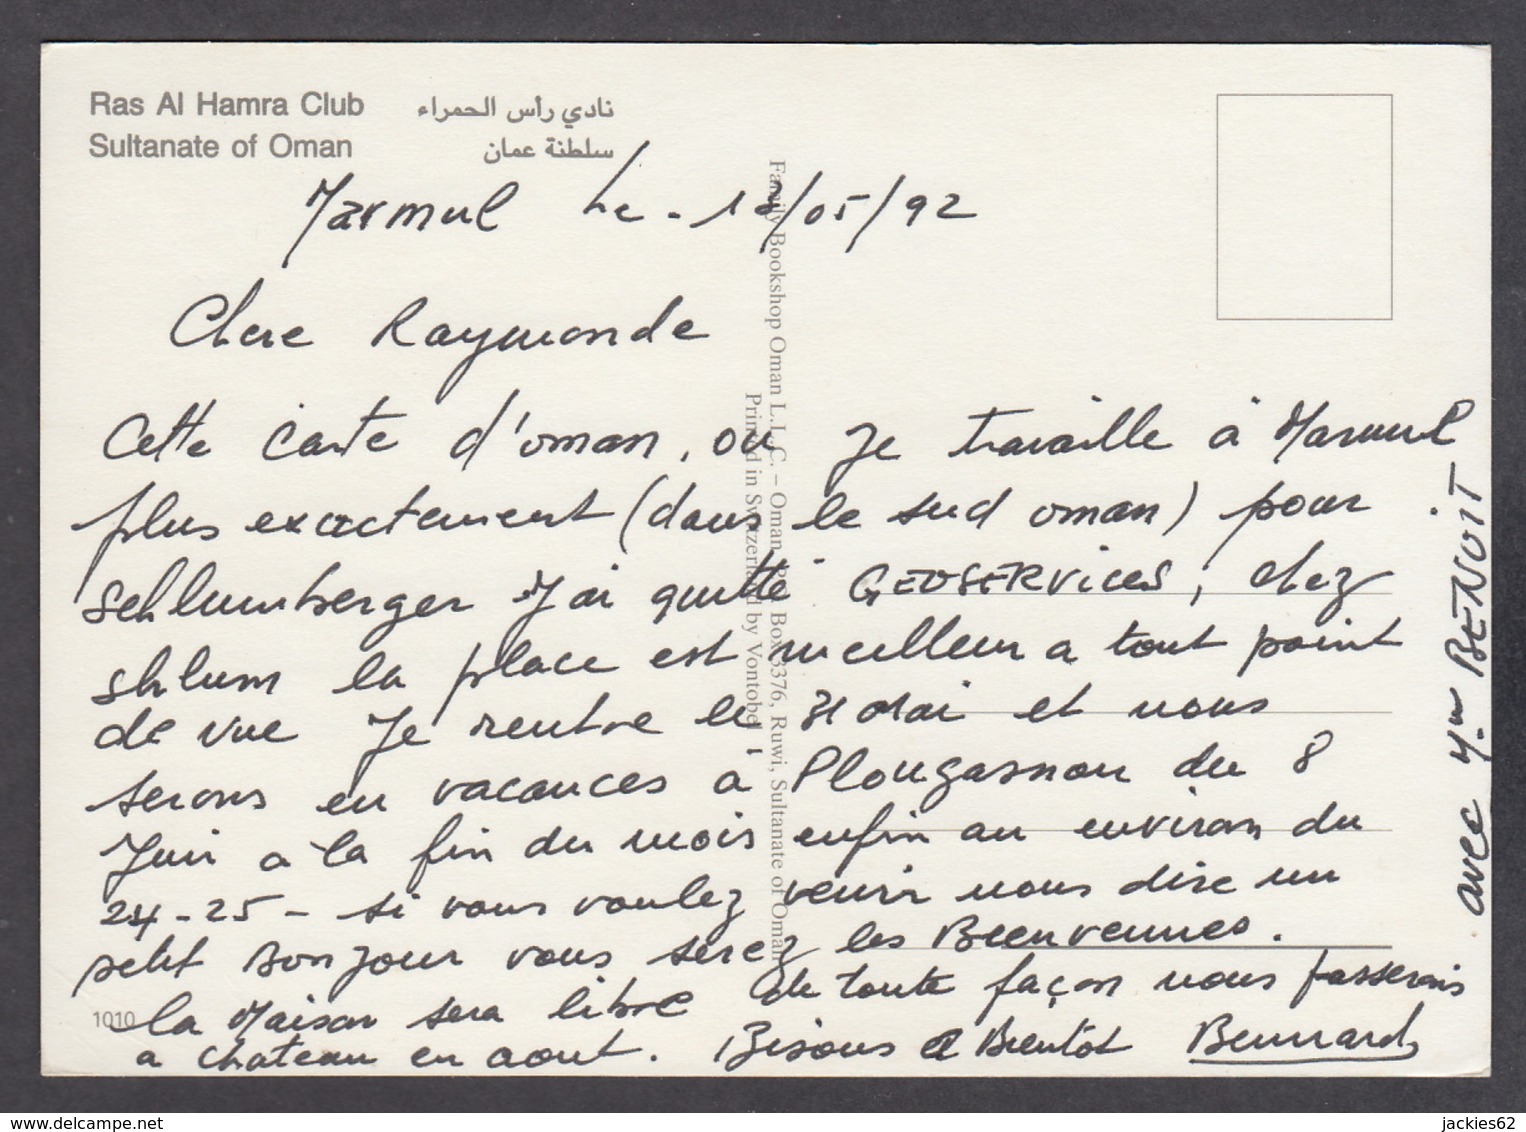 Ras Al Hamra Club
نادي رأس الحمراء
Sultanate of Oman
سلطنة عمان
Marmul Le - 13/05/92
Chere Raymonde
Cette Carte d'oman, ou je travaille à Marmul
plus exactement (dans le sud oman) pour
schlumberger J'ai quitté GEOSERVICES, chez
shlum la place est meilleur a tout point
de vue Je rentre le 31 Mai et nous
serons en vacances a Plougasnou du 8
Juin a la fin du mois enfin au environ du
24-25 - si vous voulez venir nous dire un
petit Bonjour vous serez les Bienvenues.
la Maison sera libre de toute façon nous passerons
a chateau en aout. Bisous a Bientôt Bernard
avec Mme BENOIT
Family Bookshop Oman L.L.C. – Oman P.O. Box 3376, Ruwi, Sultanate of Oman
Printed in Switzerland by Vontobel
1010
jackies62